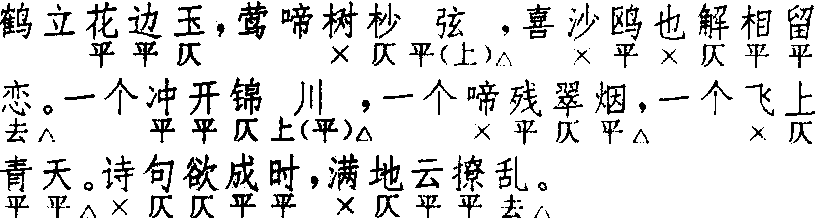 鹤立花边玉，莺啼树杪弦，喜沙鸥也解相留
平平仄 ×仄平(上)△ ×平×仄平平
恋。一个冲开锦川，一个啼残翠烟，一个飞上
去△ 平平仄上(平)△ ×平仄平△ ×仄
青天。诗句欲成时，满地云撩乱。
平平△×仄仄平平 ×仄平平去△